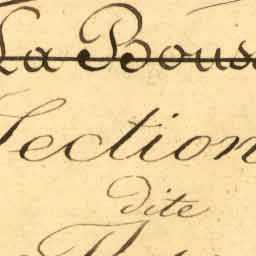 La Bous
Section
dite